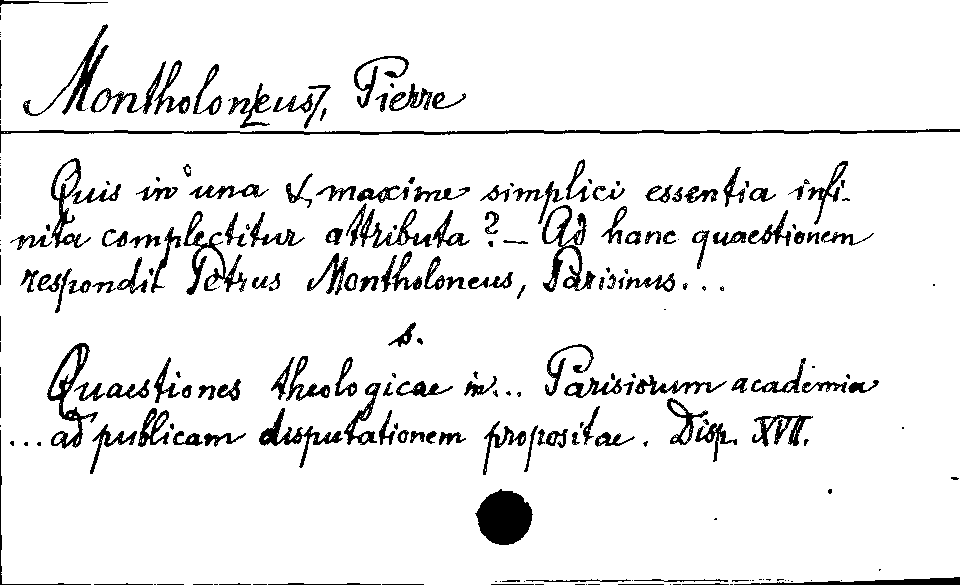 Montholon[eus], Pierre
Quis in una & maxime simplici essentia infi-
nita complectitur attributa? — Ad hanc quaestionem
respondit Petrus Montholoneus, Parisinus...
s.
Quaestiones theologicae in... Parisiorum academia
...ad publicam disputationem propositae. Disp. XVII.